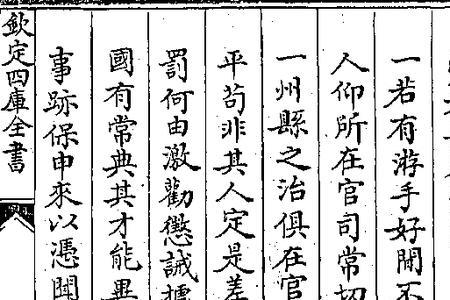 一若有游手好閒不
人仰所在官司常切
一州縣之治俱在官
平苟非其人定是差
罰何由激勸懲誡據
國有常典其才能異
事跡保申來以憑聞
欽定四庫全書